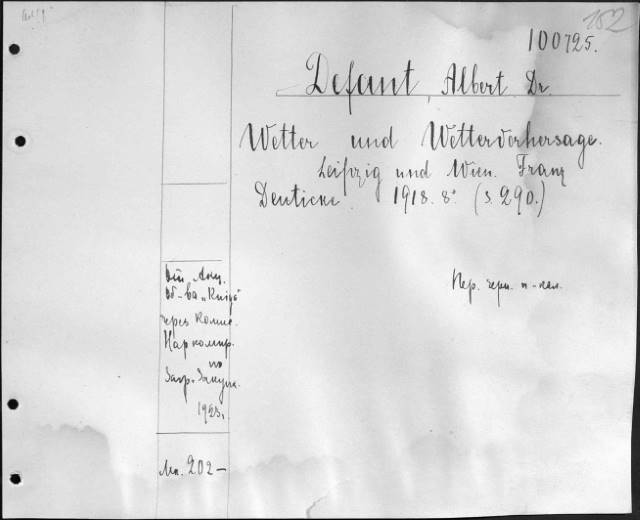 152
100725.
Defant, Albert Dr.
Wetter und Wettervorhersage.
Leipzig und Wien. Franz
Deuticke 1918. 8°. (S. 290.)
Пер. черн. п-кол.
Акц.
Об-ва „Kniga"
через Комис.
Наркомпр.
по
Загр. Закупк.
1923 г.
Мк. 202-